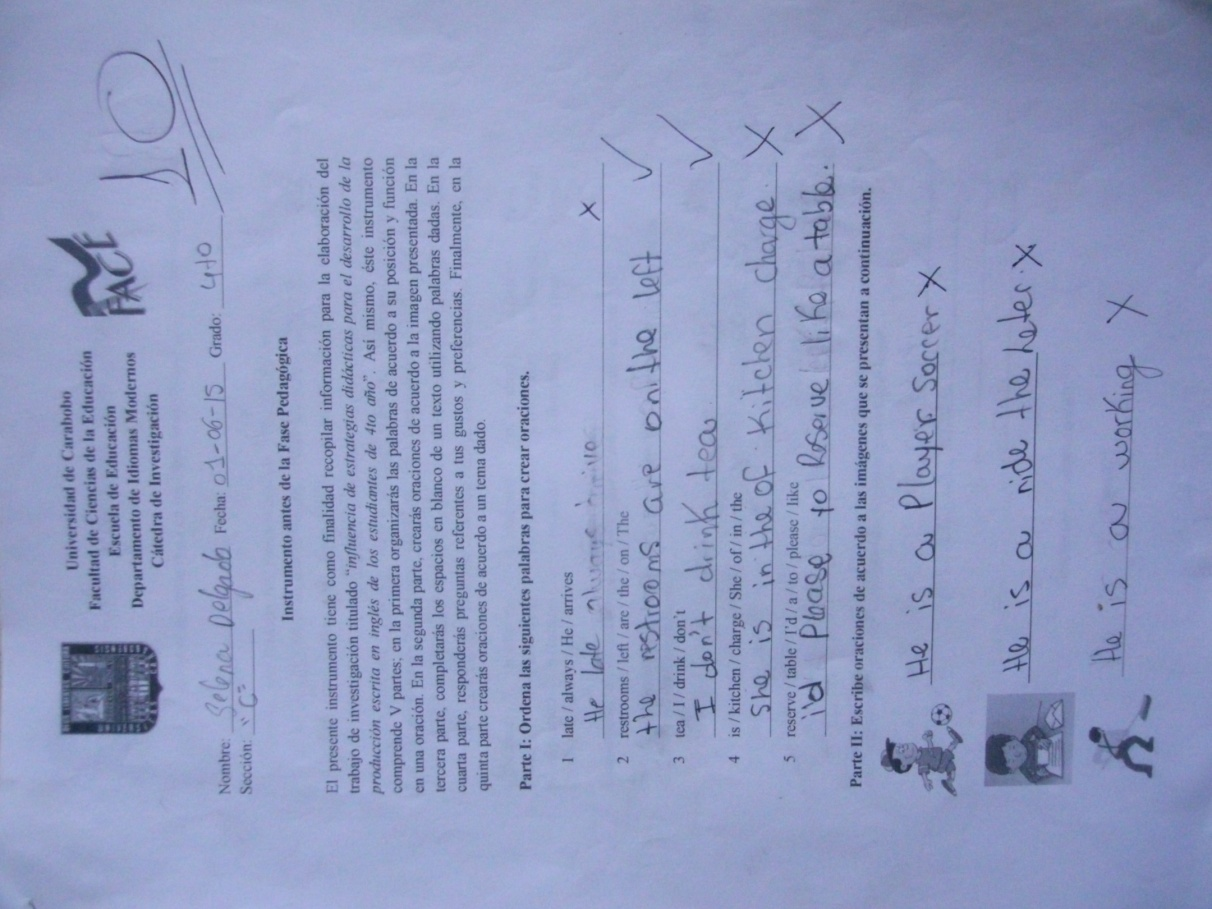 Universidad de Carabobo
Facultad de Ciencias de la Educación
Escuela de Educación
Departamento de Idiomas Modernos
Cátedra de Investigación
FACE
10
Nombre: Selena Delgado Fecha: 01-06-15 Grado: 4to
Sección: "C"
Instrumento antes de la Fase Pedagógica
El presente instrumento tiene como finalidad recopilar información para la elaboración del
trabajo de investigación titulado "influencia de estrategias didácticas para el desarrollo de la
producción escrita en inglés de los estudiantes de 4to año". Así mismo, éste instrumento
comprende V partes; en la primera organizarás las palabras de acuerdo a su posición y función
en una oración. En la segunda parte, crearás oraciones de acuerdo a la imagen presentada. En la
tercera parte, completarás los espacios en blanco de un texto utilizando palabras dadas. En la
cuarta parte, responderás preguntas referentes a tus gustos y preferencias. Finalmente, en la
quinta parte crearás oraciones de acuerdo a un tema dado.
Parte I: Ordena las siguientes palabras para crear oraciones.
1 late / always / He / arrives
He late always
2 restrooms / left / are / the / on / The
the restrooms are on the left
3 tea / I / drink / don't
I don't drink tea
4 is / kitchen / charge / She / of / in / the
She is in the of kitchen charge.
5 reserve / table / I'd / a / to / please / like
i'd Please to Reserve like a table.
Parte II: Escribe oraciones de acuerdo a las imágenes que se presentan a continuación.
He is a Player Soccer
He is a ride the heter.
He is a working